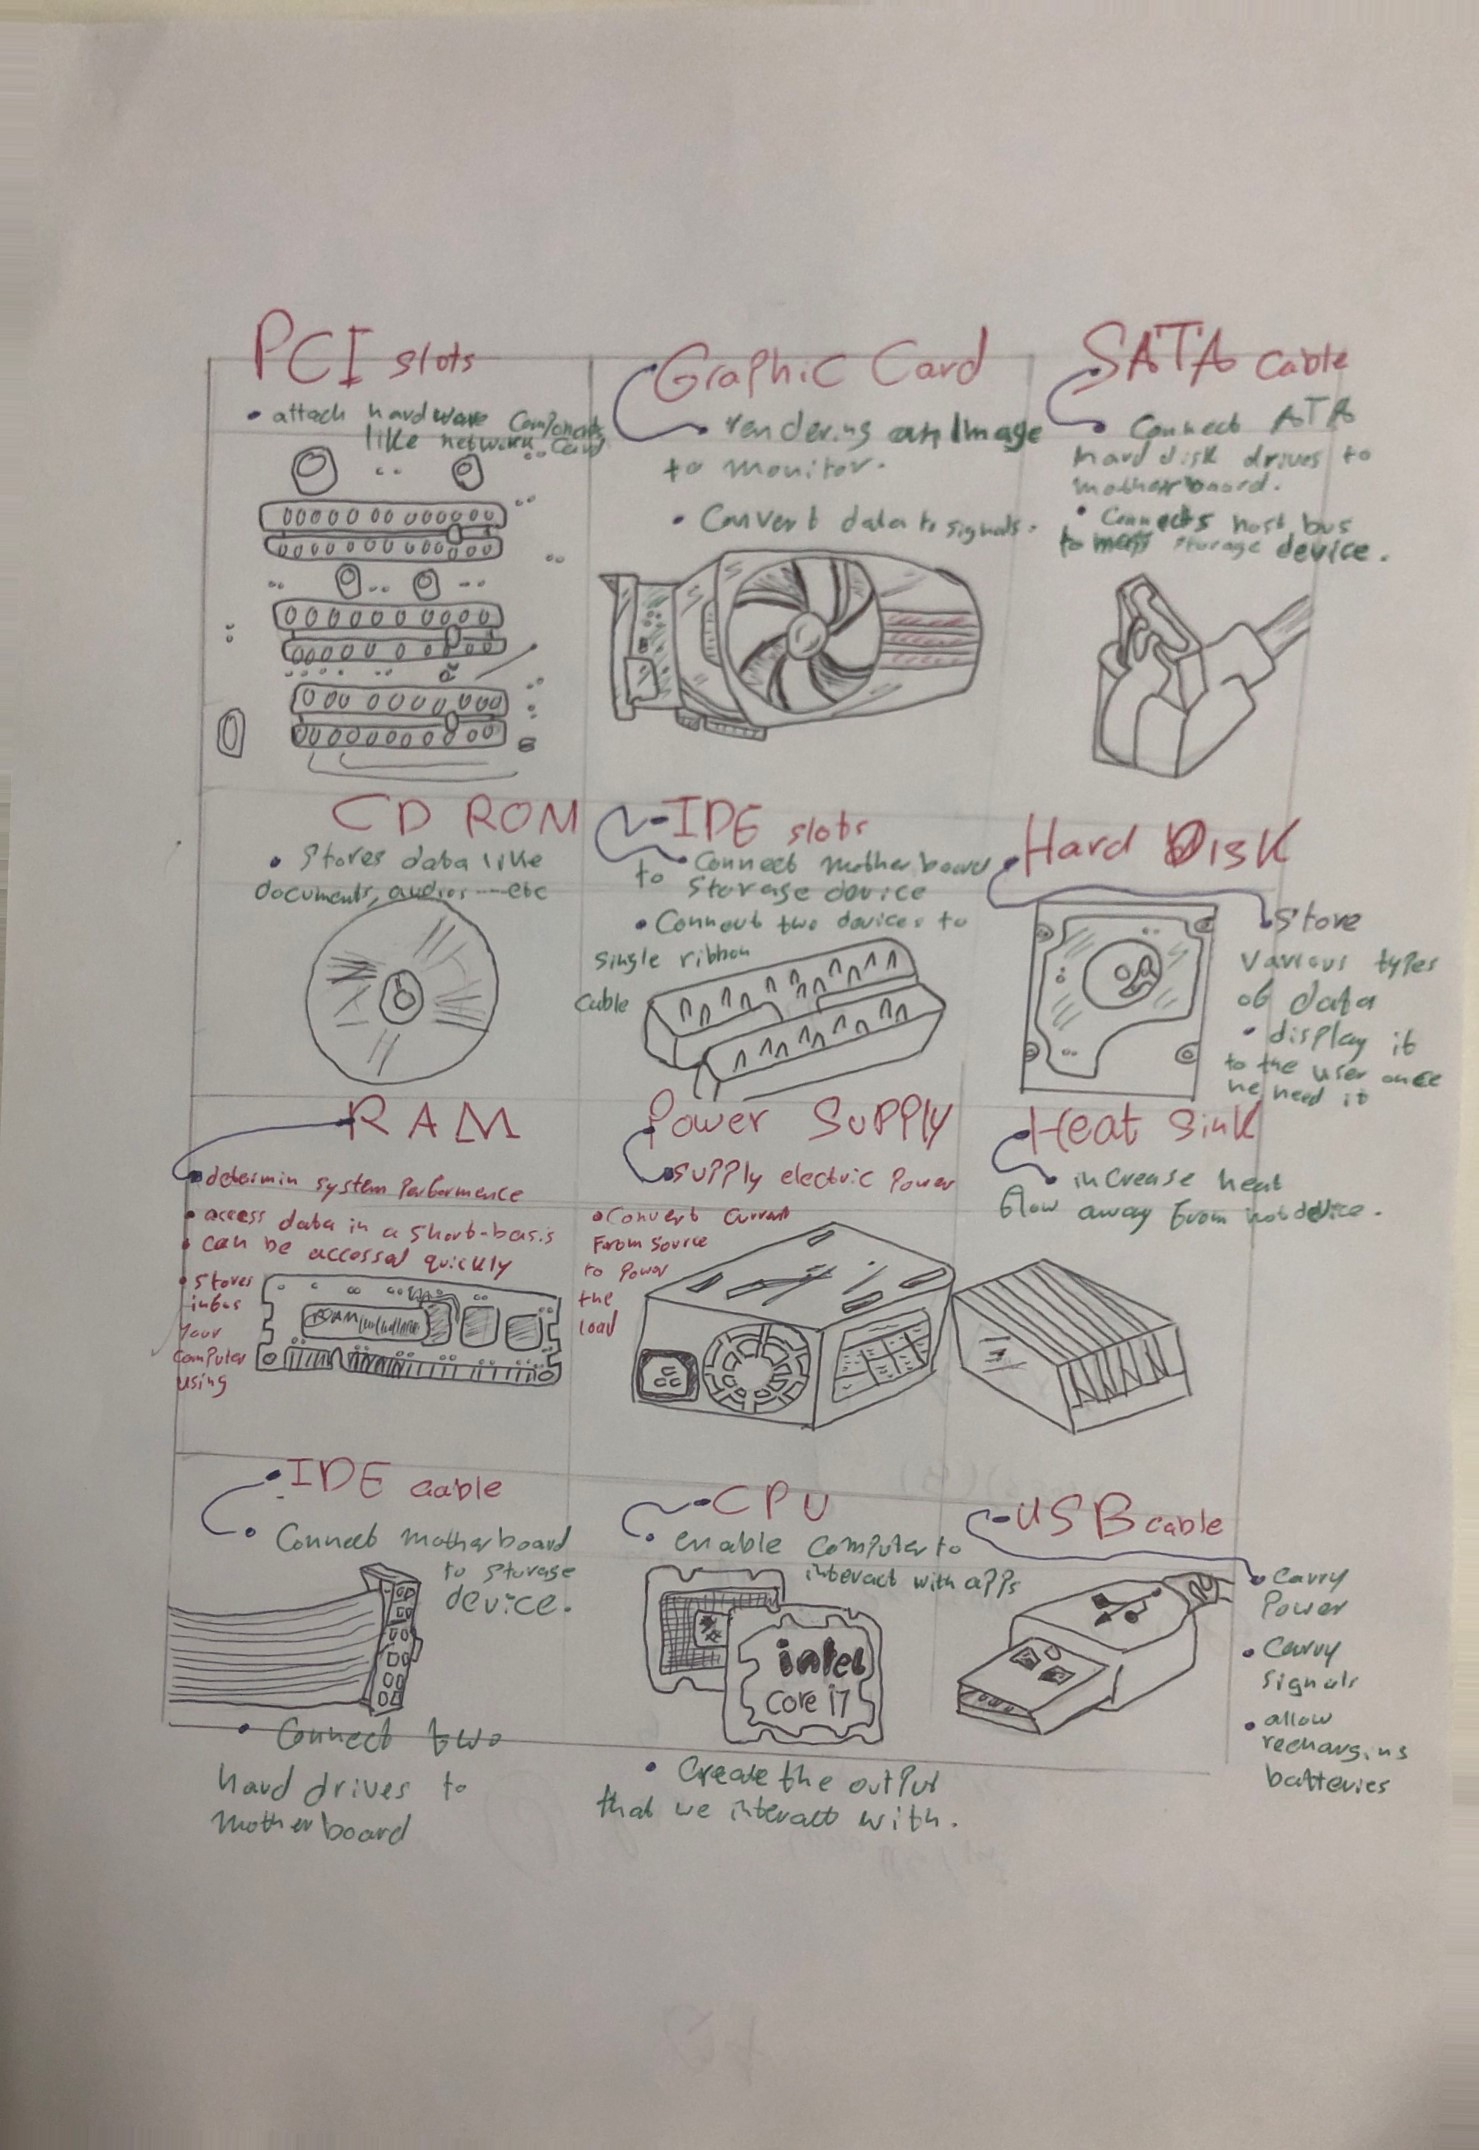 PCI slots
• attach hardware Components
like network Card
Graphic Card
• rendering an Image
to monitor.
• Convert data to signals.
SATA Cable
• Connect ATA
hard disk drives to
motherboard.
• Connects host bus
to mass storage device.
CD ROM
• Stores data like
documents, audios ----etc
IDE slots
• Connect motherboard
to storage device
• Connect two devices to
single ribbon
Cable
Hard Disk
• Store
Various types
of data
• display it
to the user once
he need it
RAM
• determin system Performence
• access data in a short-basis
• can be accessed quickly
• Stores
infos
your
Computer
using
RAM
Power Supply
• Supply electric Power
• Convert Current
From source
to Power
the
load
Heat Sink
• increase heat
flow away from hot device.
IDE cable
• Connect motherboard
to storage
device.
• Connect two
hard drives to
motherboard
CPU
• enable Computer to
interact with apps
intel
Core i7
• Create the output
that we interact with.
USB cable
• Carry
Power
• Carry
signals
• allow
recharging
batteries